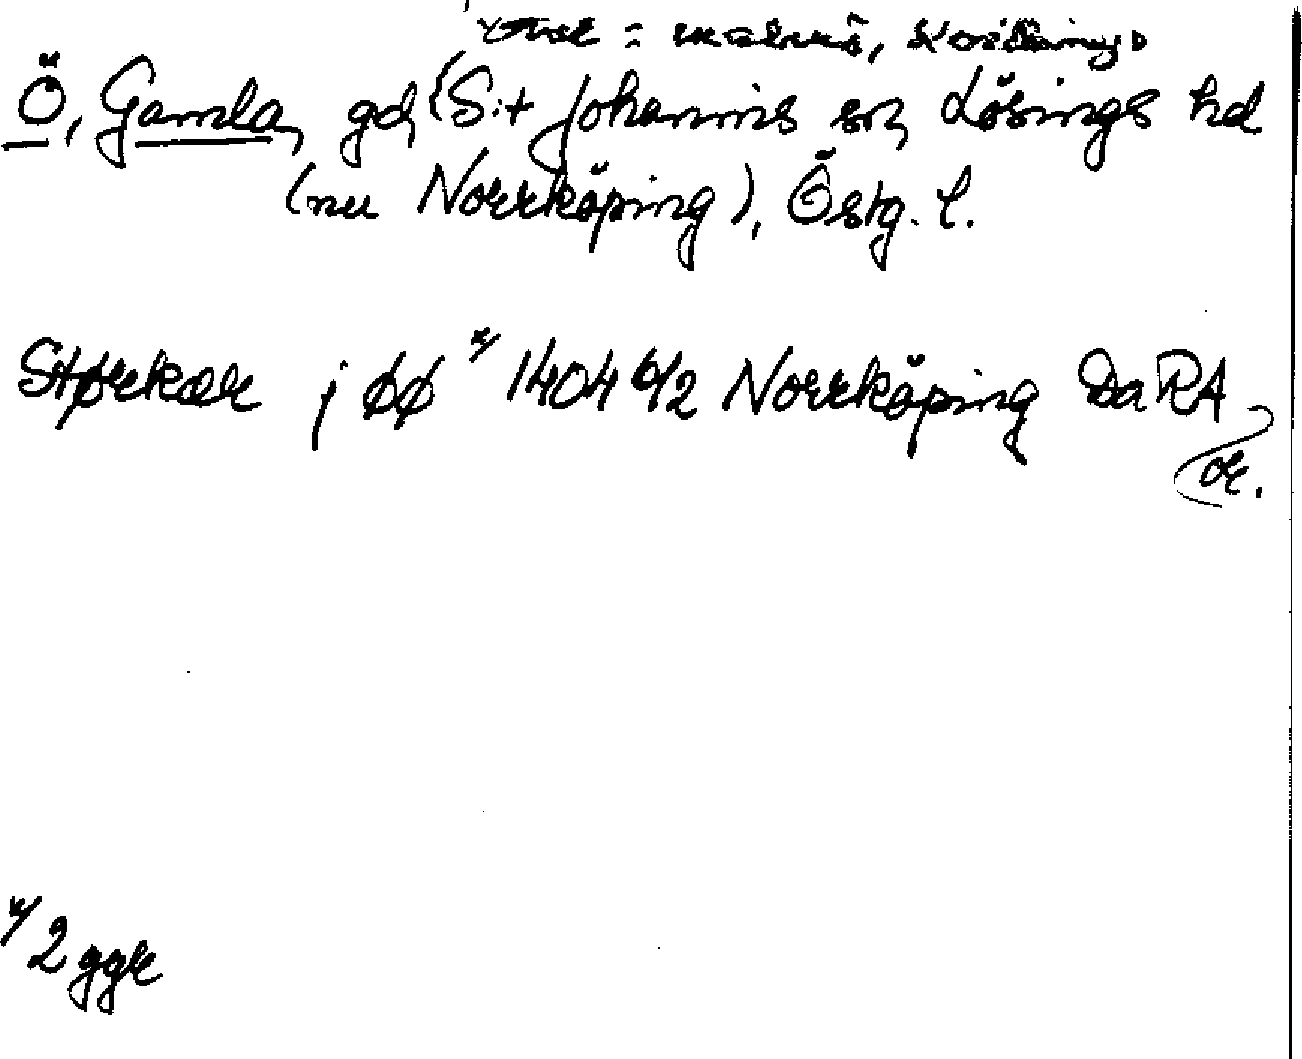 Ö, Gamla, gd, (S:t Johannis sn, Lösings hd
(nu Norrköping), Östg. l.
Størkær j øø x/ 1404 6/2 Norrköping DaRA
or.
x/ 2 ggr